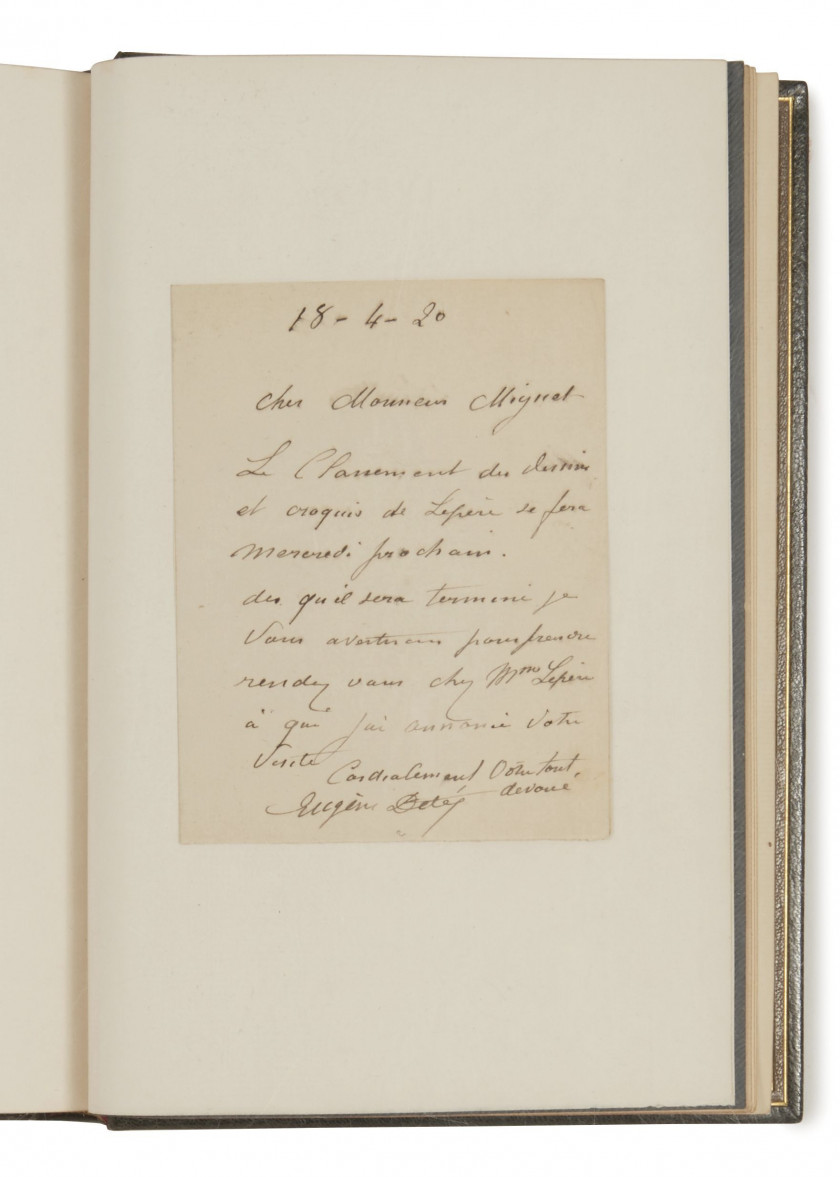 18 - 4 - 20
Cher Monsieur Miguet
Le Classement des dessins
et croquis de Lepère se fera
mercredi prochain.
des qu'il sera terminé je
vous avertirai pour prendre
rendez vous chez Mme Lepère
à qui j'ai annoncé votre
visite
Cordialement Votre tout
devoué
Eugène Deté